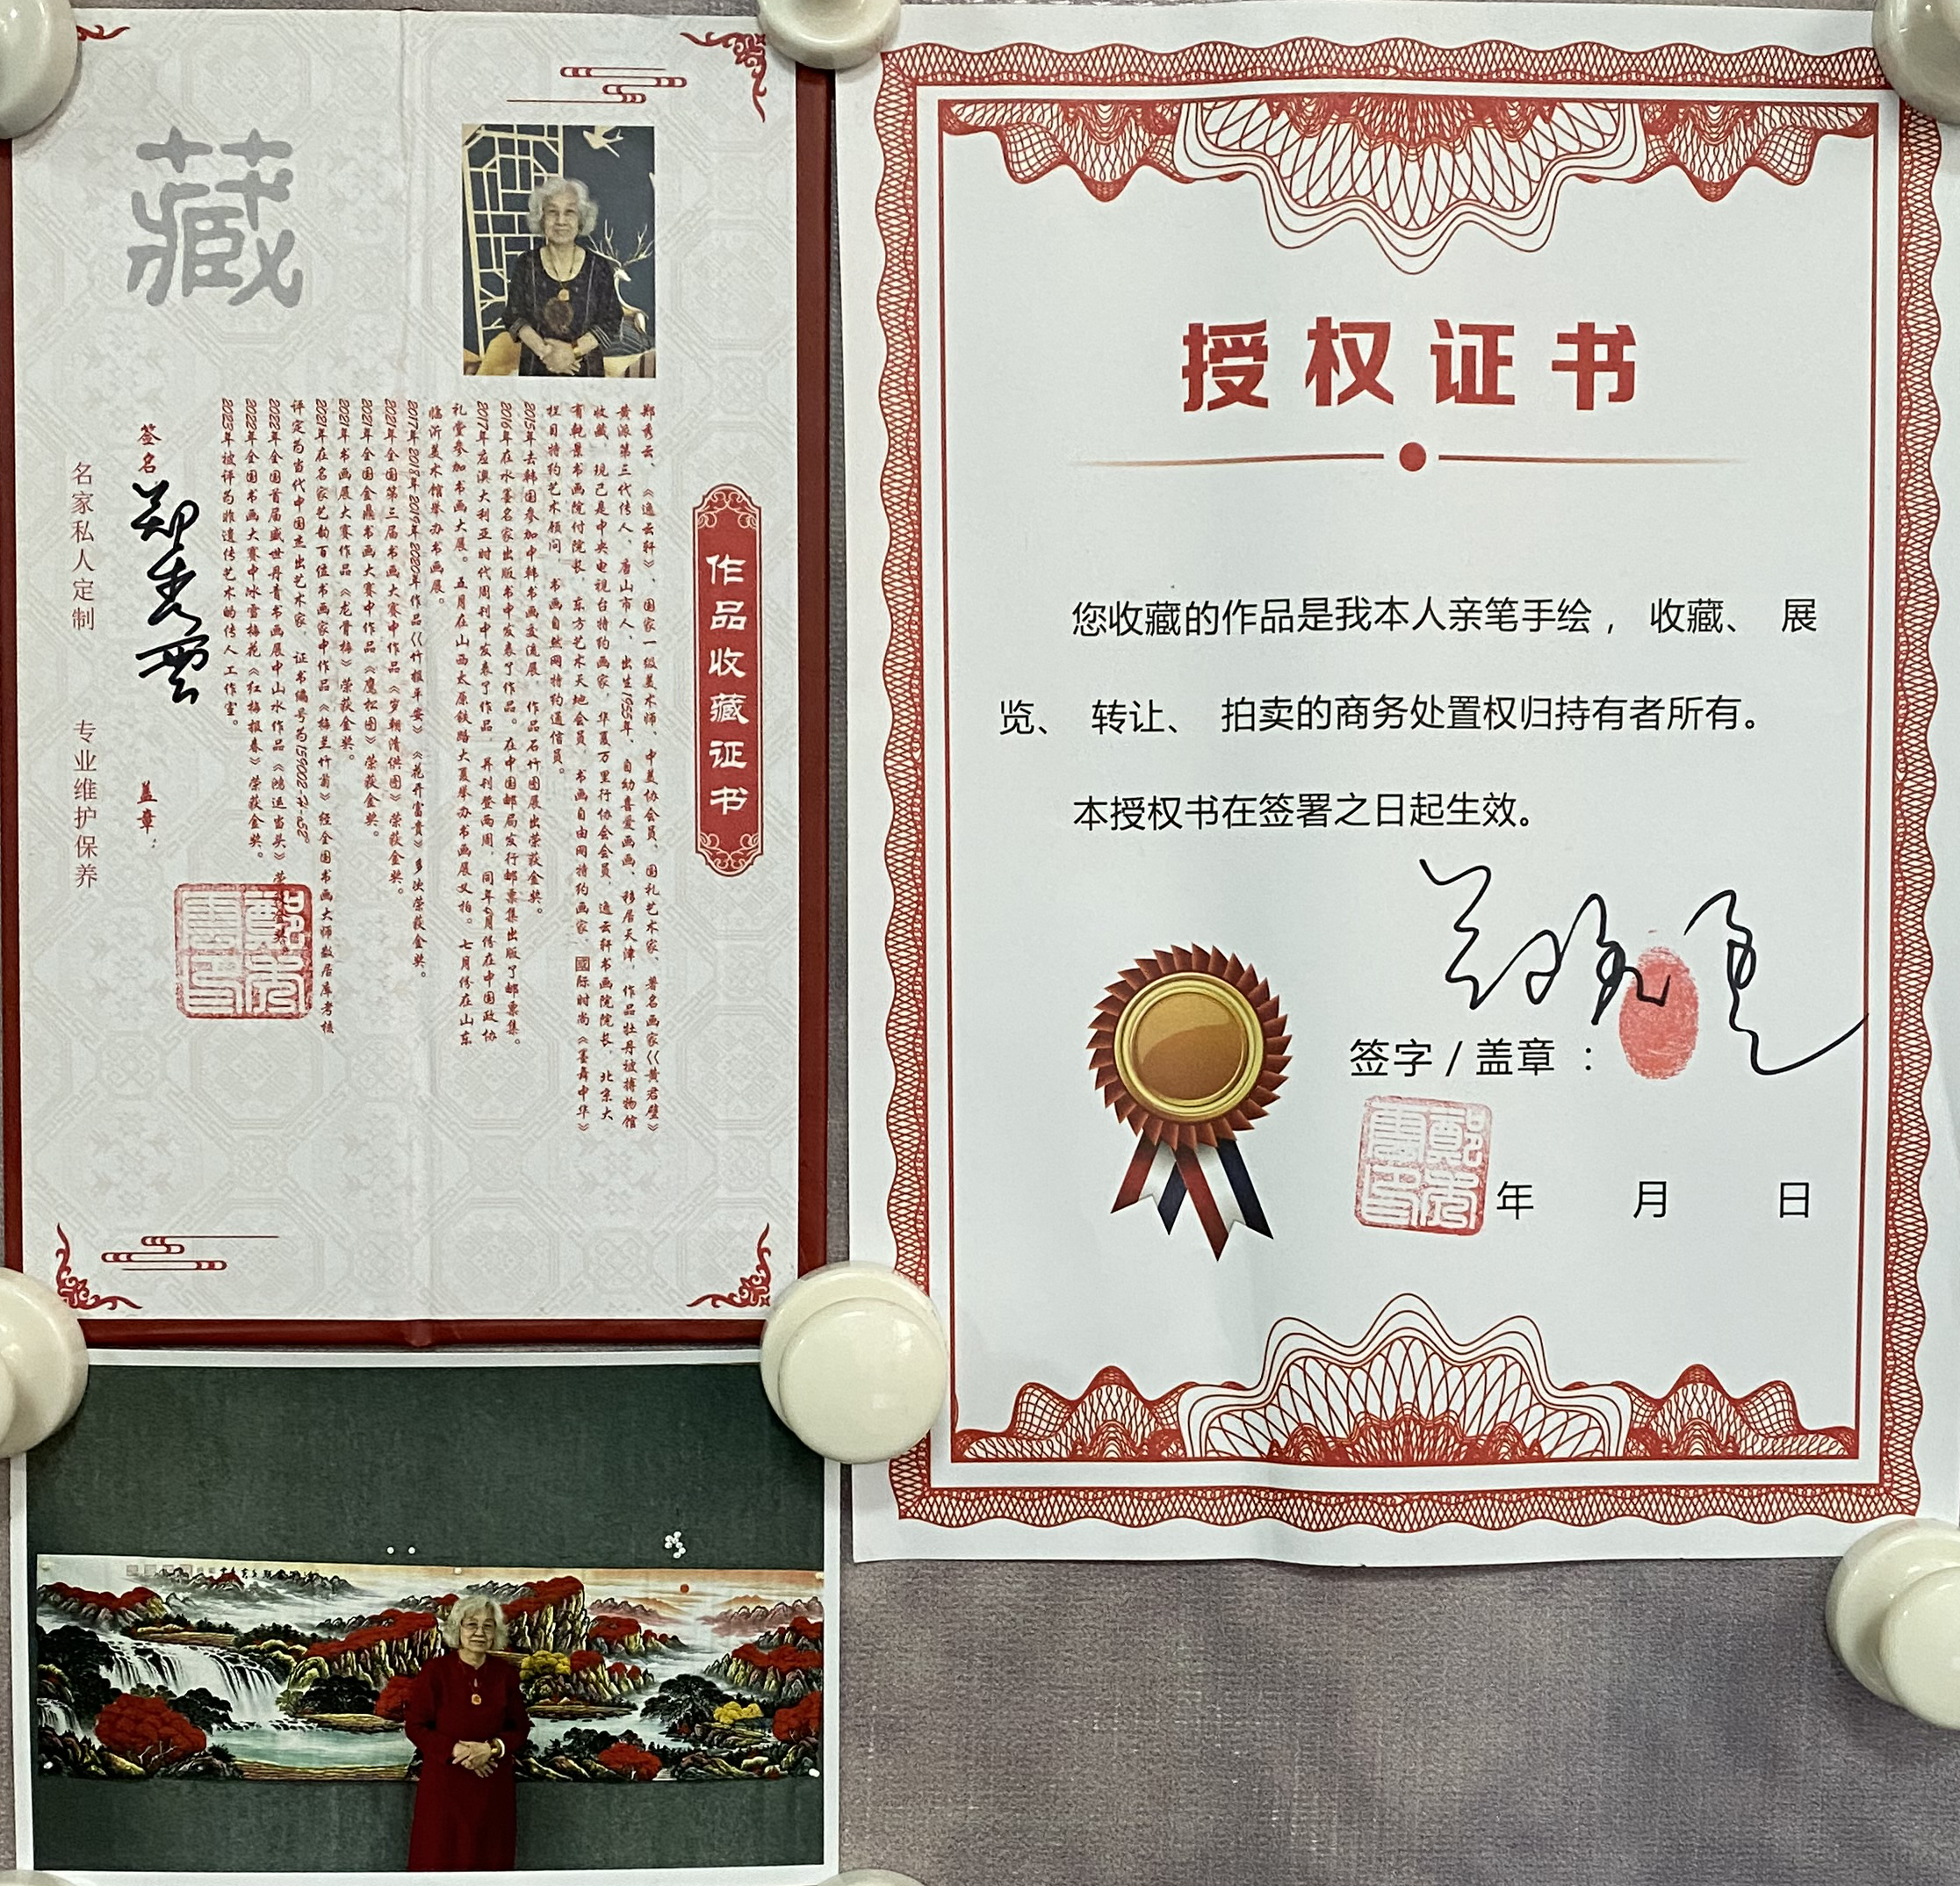 藏
作品收藏证书
郑秀云、《逸云轩》、国家一级美术师、中美协会员、国礼艺术家、著名画家《《黄君璧》
黄派第三代传人、唐山市人、出生1955年、自幼喜爱画画、移居天津、作品牡丹被博物馆
收藏、现已是中央电视台特约画家，华夏万里行协会会员，逸云轩书画院院长，北京大
有乾景书画院付院长，东方艺术天地会员，书画自由网特约画家、國际时尚《墨舞中华》
栏目特约艺术顾问、书画自然网特约通信员。
2015年去韩国参加中韩书画交流展，作品石竹图展出荣获金奖。
2016年在水墨名家出版书中发表了作品。在中国邮局发行邮票集出版了邮票集。
2017年应澳大利亚时代周刊中发表了作品，并刊登两周，同年6月份在中国政协
礼堂参加书画大展。五月在山西太原铁路大厦举办书画展义拍。七月份在山东
临沂美术馆举办书画展。
2017年2018年2019年2020年作品《《竹报平安》《花开富贵》多次荣获金奖。
2021年全国第三届书画大赛中作品《岁朝清供图》荣获金奖。
2021年全国金鼎书画大赛中作品《鹰松图》荣获金奖。
2021年书画展大赛作品《龙骨梅》荣获金奖。
2021年在名家艺韵百位书画家中作品《梅兰竹菊》经全国书画大师数居库考核
评定为当代中国杰出艺术家，证书编号为159002-
2022年全国首届盛世丹青书画展中山水作品《鸿运当头》荣获金奖。
2022年全国书画大赛中冰雪梅花《红梅报春》荣获金奖。
2023年被评为非遗传艺术的传人工作室。
签名 郑秀雲 盖章：
鄭秀雲印
名家私人定制 专业维护保养
授权证书
您收藏的作品是我本人亲笔手绘， 收藏、 展
览、 转让、 拍卖的商务处置权归持有者所有。
本授权书在签署之日起生效。
郑秀云
签字/盖章：
鄭秀雲印
年 月 日